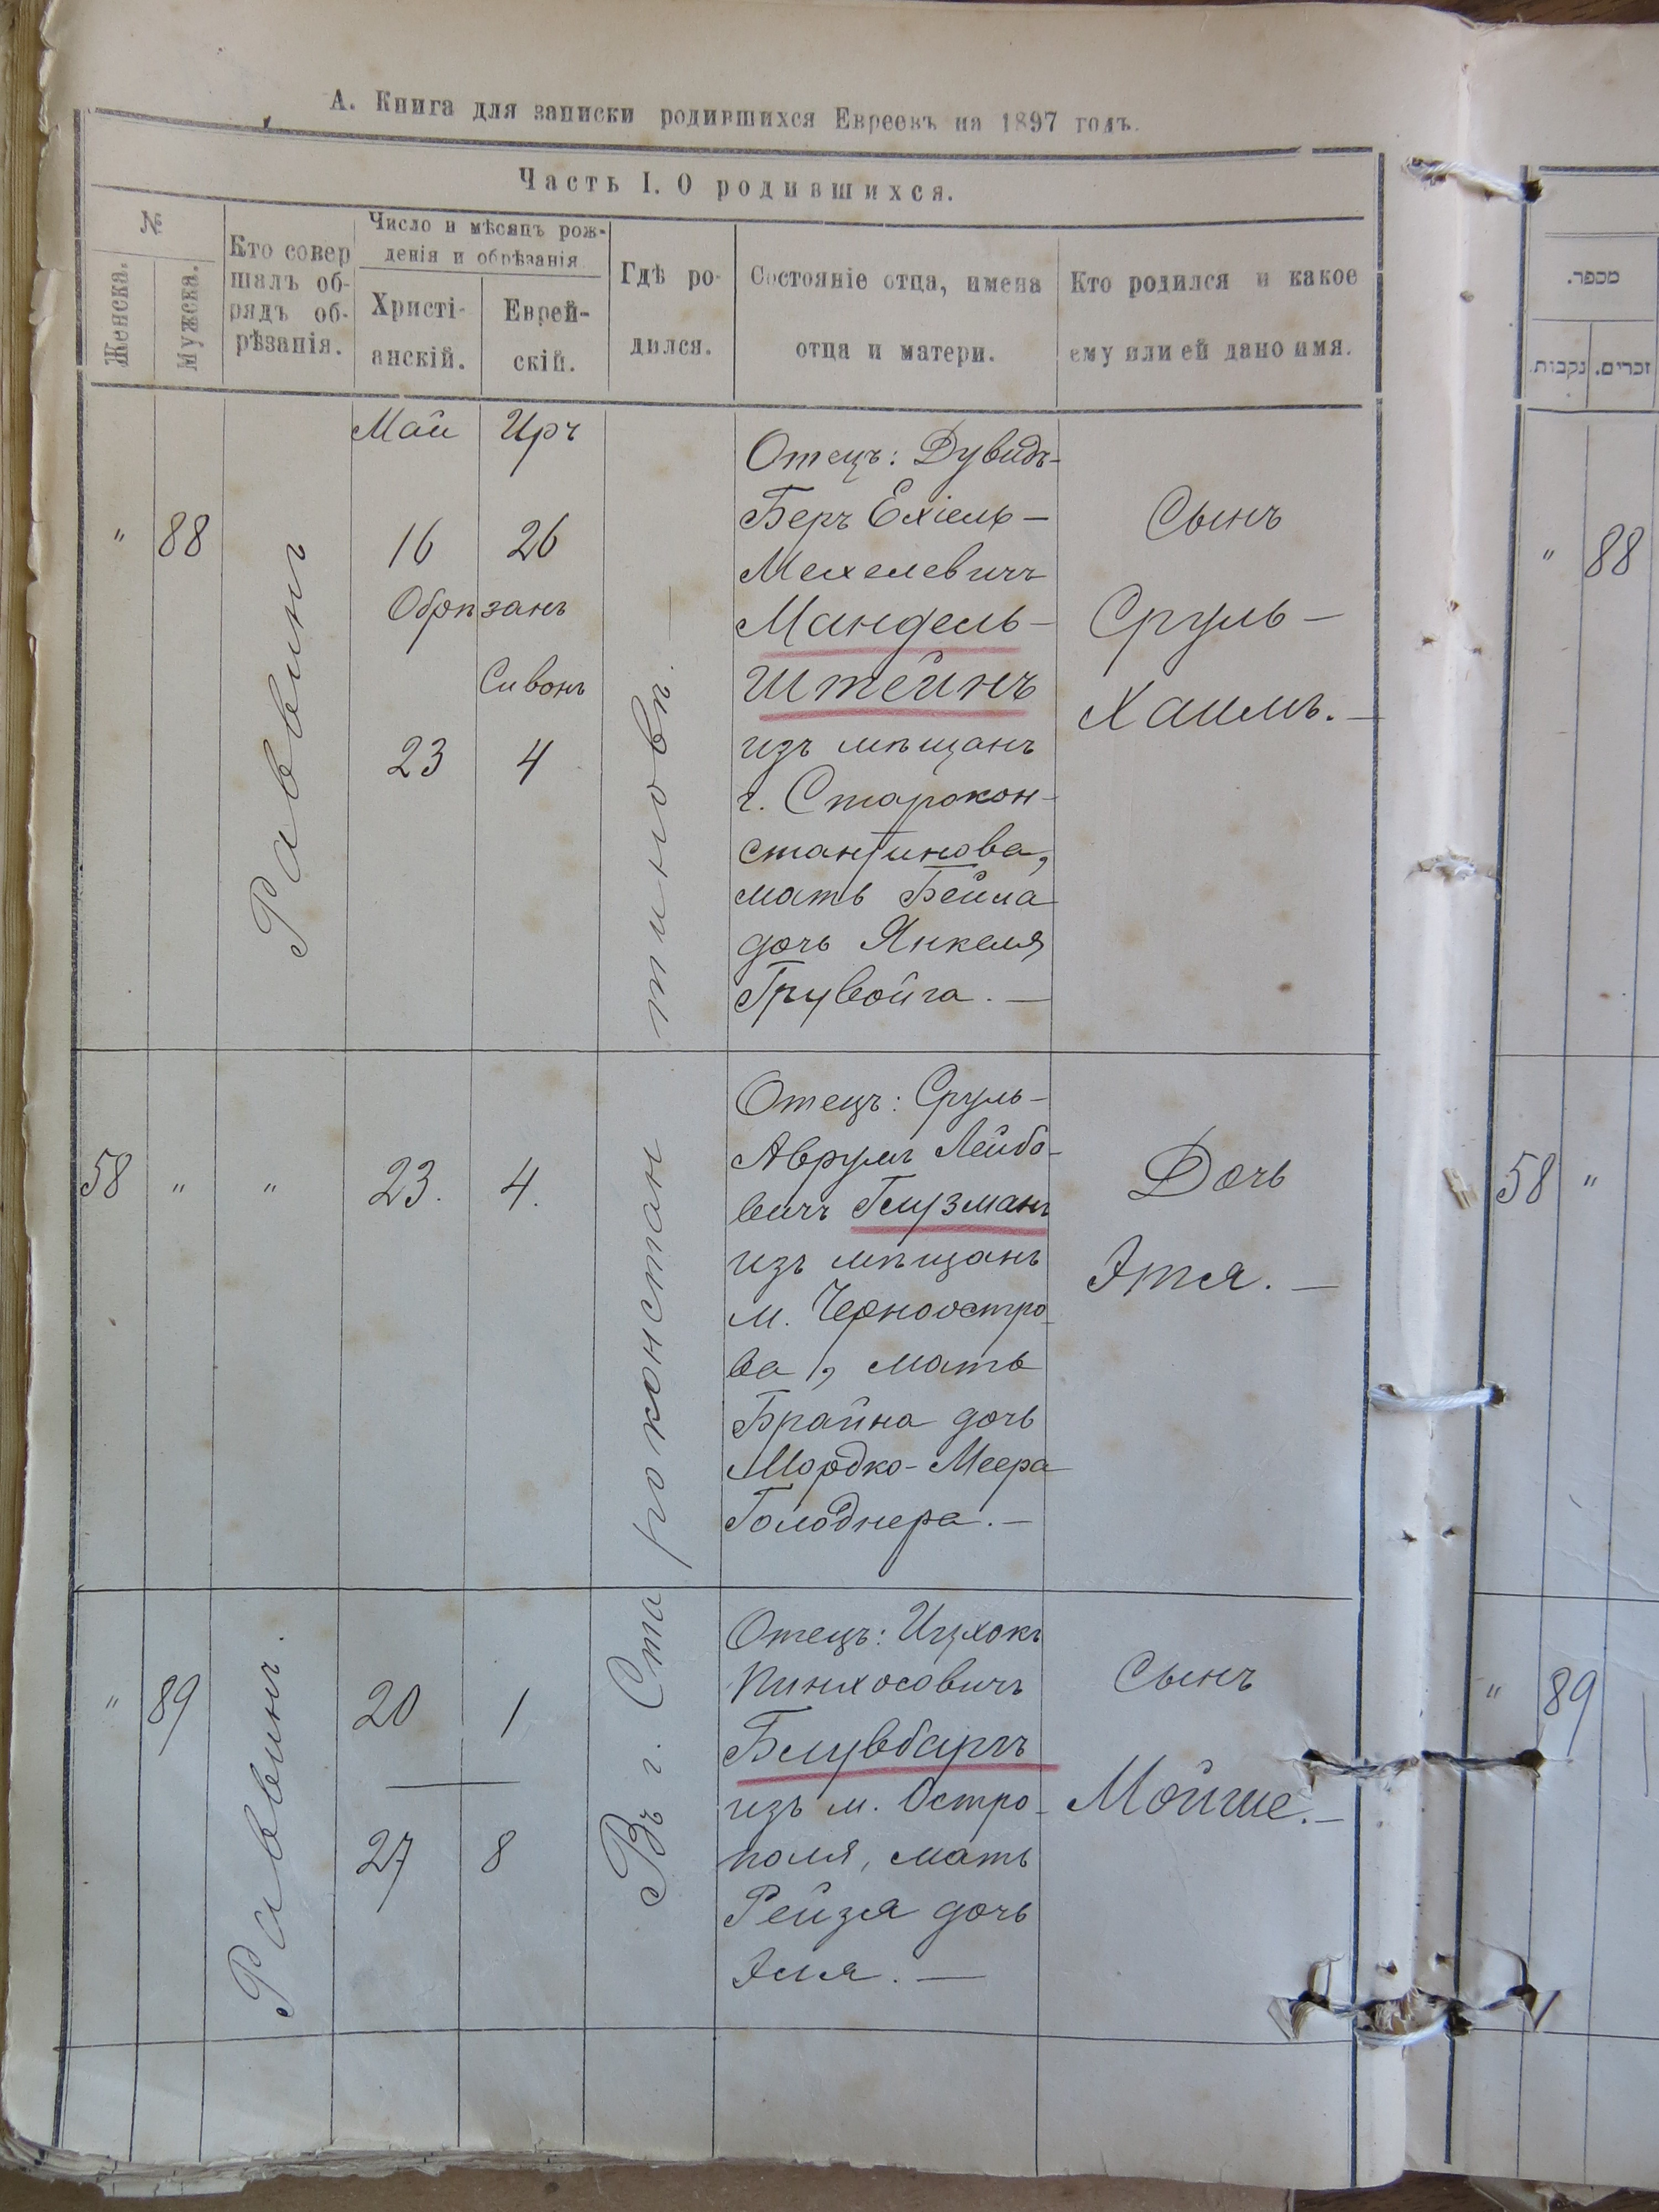 А. Книга для записки родившихся Евреевъ на 1897 годъ.
Часть I. О родившихся.
№
Женска.
Мужска.
Кто совер
шалъ об-
рядъ об-
рѣзанія.
Число и мѣсяцъ рож-
денія и обрѣзанія
Христі-
анскій.
Еврей-
скій.
Гдѣ ро-
дился.
Состояніе отца, имена
отца и матери.
Кто родился и какое
ему или ей дано имя.
מספר.
נקבות.
זכרים.
"
88
Раввинъ
Май
Иръ
16
26
Обрѣзанъ
Сивонъ
23
4
Въ г. Староконстантиновѣ. —
Отецъ: Дувидъ-
Беръ Ехіель-
Мехелевичъ
Мандель-
Штейнъ
изъ мѣщанъ
г. Старокон-
стантинова,
мать Бейла
дочь Янкеля
Грувойга. —
Сынъ
Сруль-
Хаимъ. —
" 88
58
"
"
23.
4.
Отецъ: Сруль-
Аврумъ Лейбо-
вичъ Глузманъ
изъ мѣщанъ
м. Черноостро-
ва, мать
Брайна дочь
Мордко-Меера
Голоднера. —
Дочь
Этя. —
58 "
"
89
Раввинъ.
20
1
27
8
Отецъ: Ицхокъ
Пинхосовичъ
Блувбаргъ
изъ м. Остро-
поля, мать
Рейзя дочь
Эля. —
Сынъ
Мойше. —
" 89